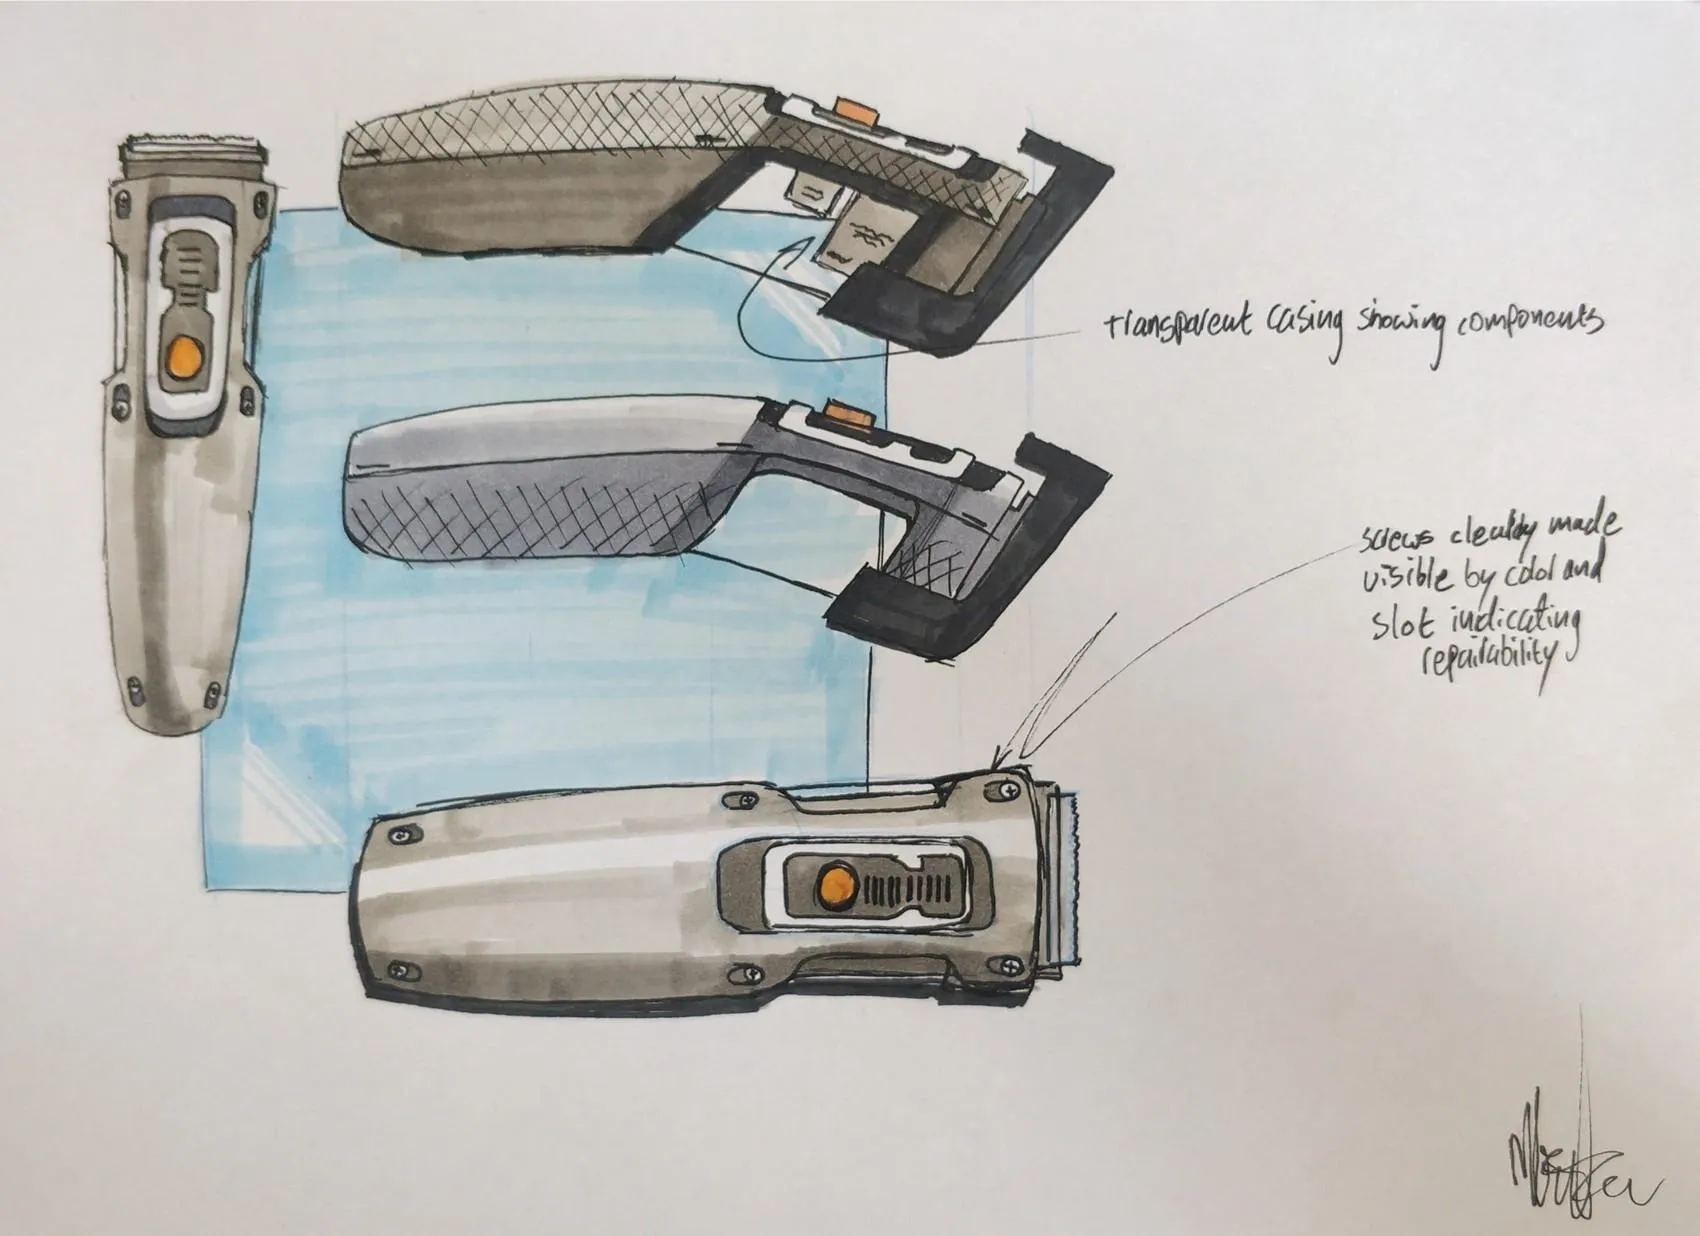 transparent casing showing components
screws clearly made
visible by color and
slot indicating
repairability